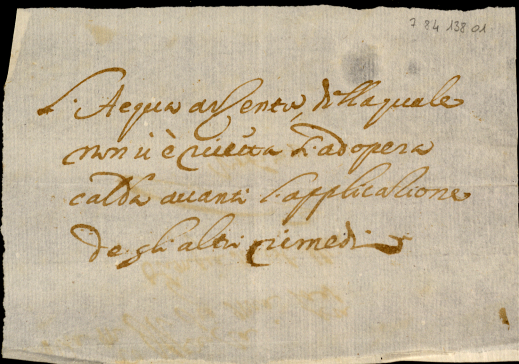 7 84 138 01
L'Acqua argento, della quale
non vi è ricetta s'adopera
calda avanti l'applicatione
de gli altri rimedi